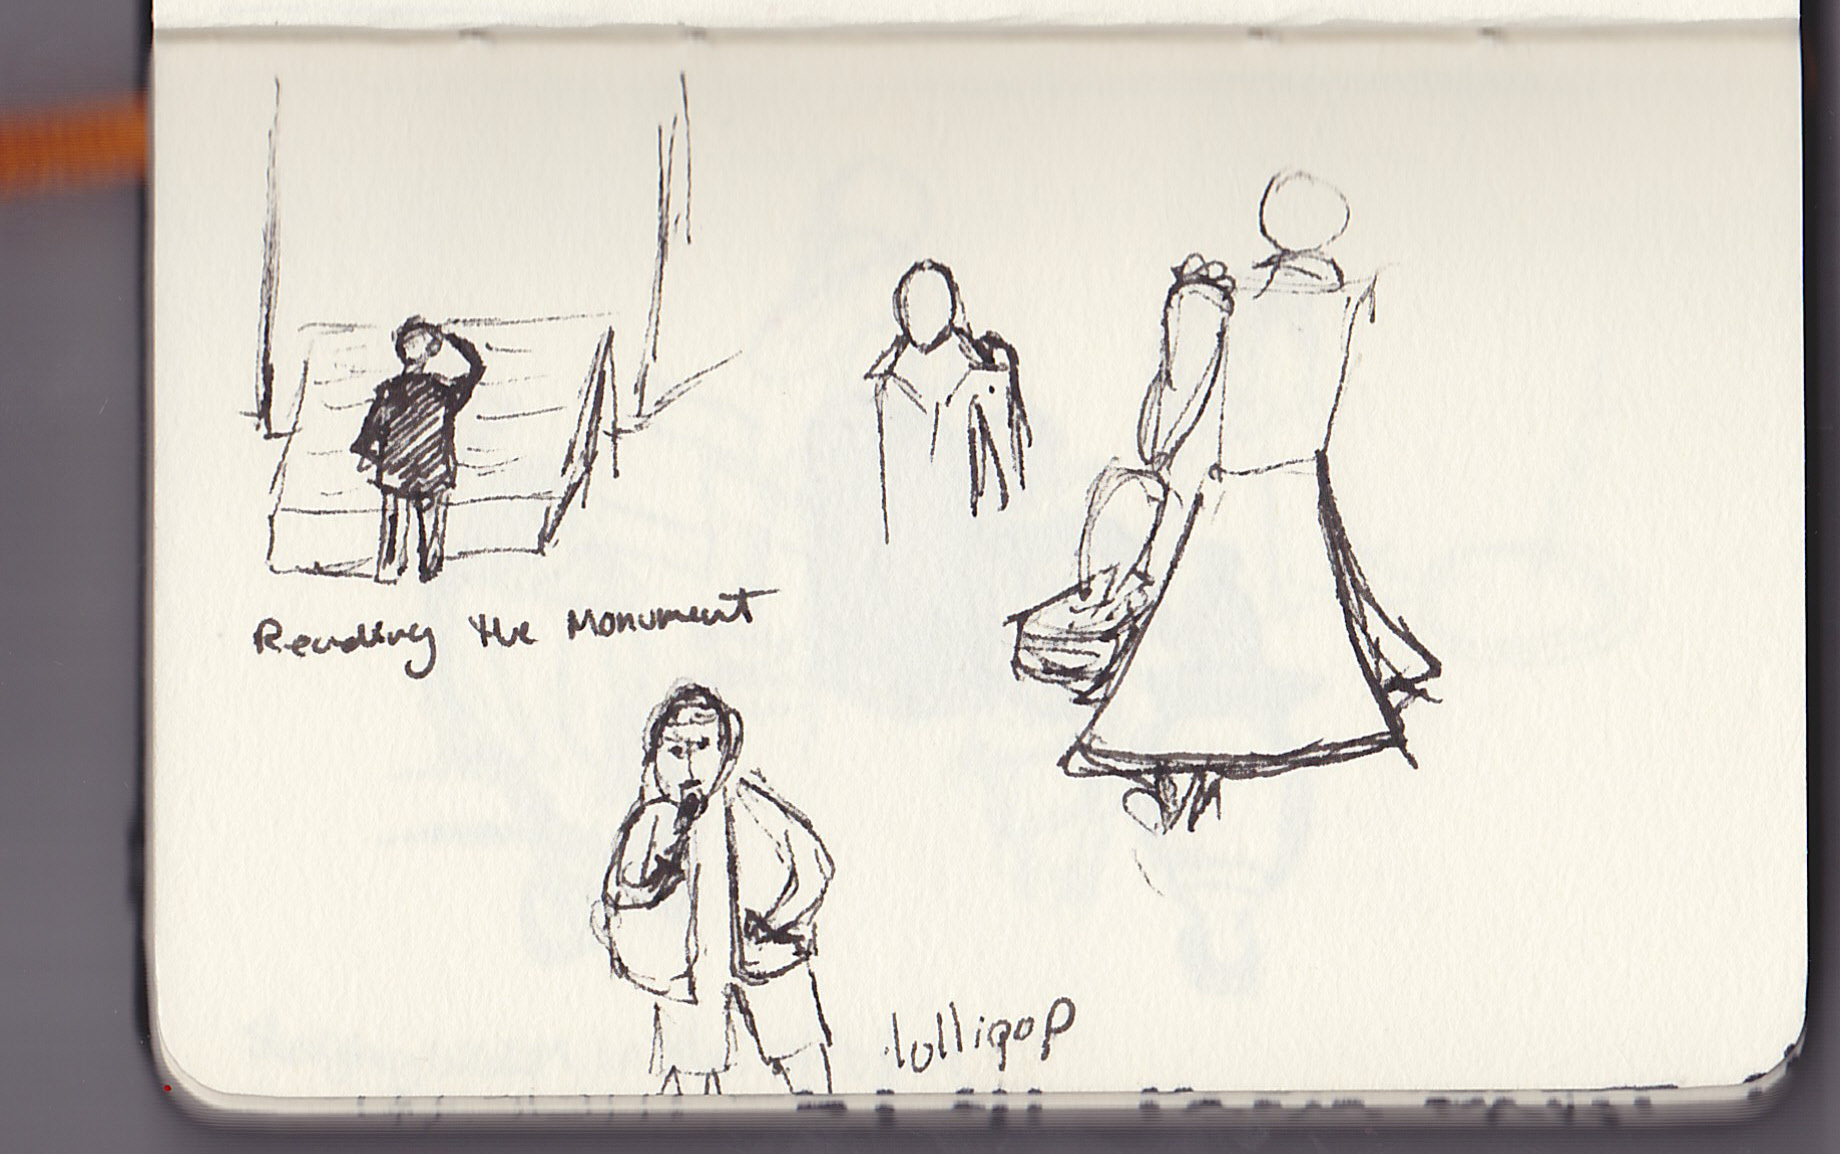 Reading the Monument
lollipop